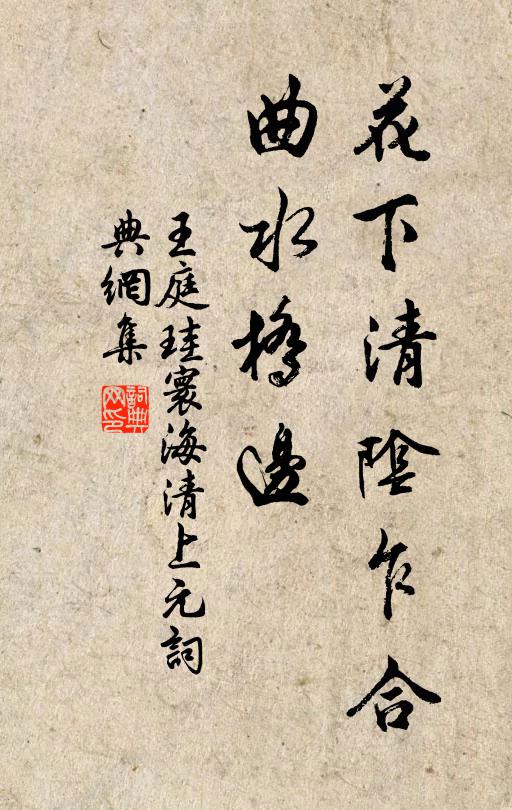 花下清陰乍合
曲水橋邊
王庭珪寰海清上元詞
典網集
詞典網印